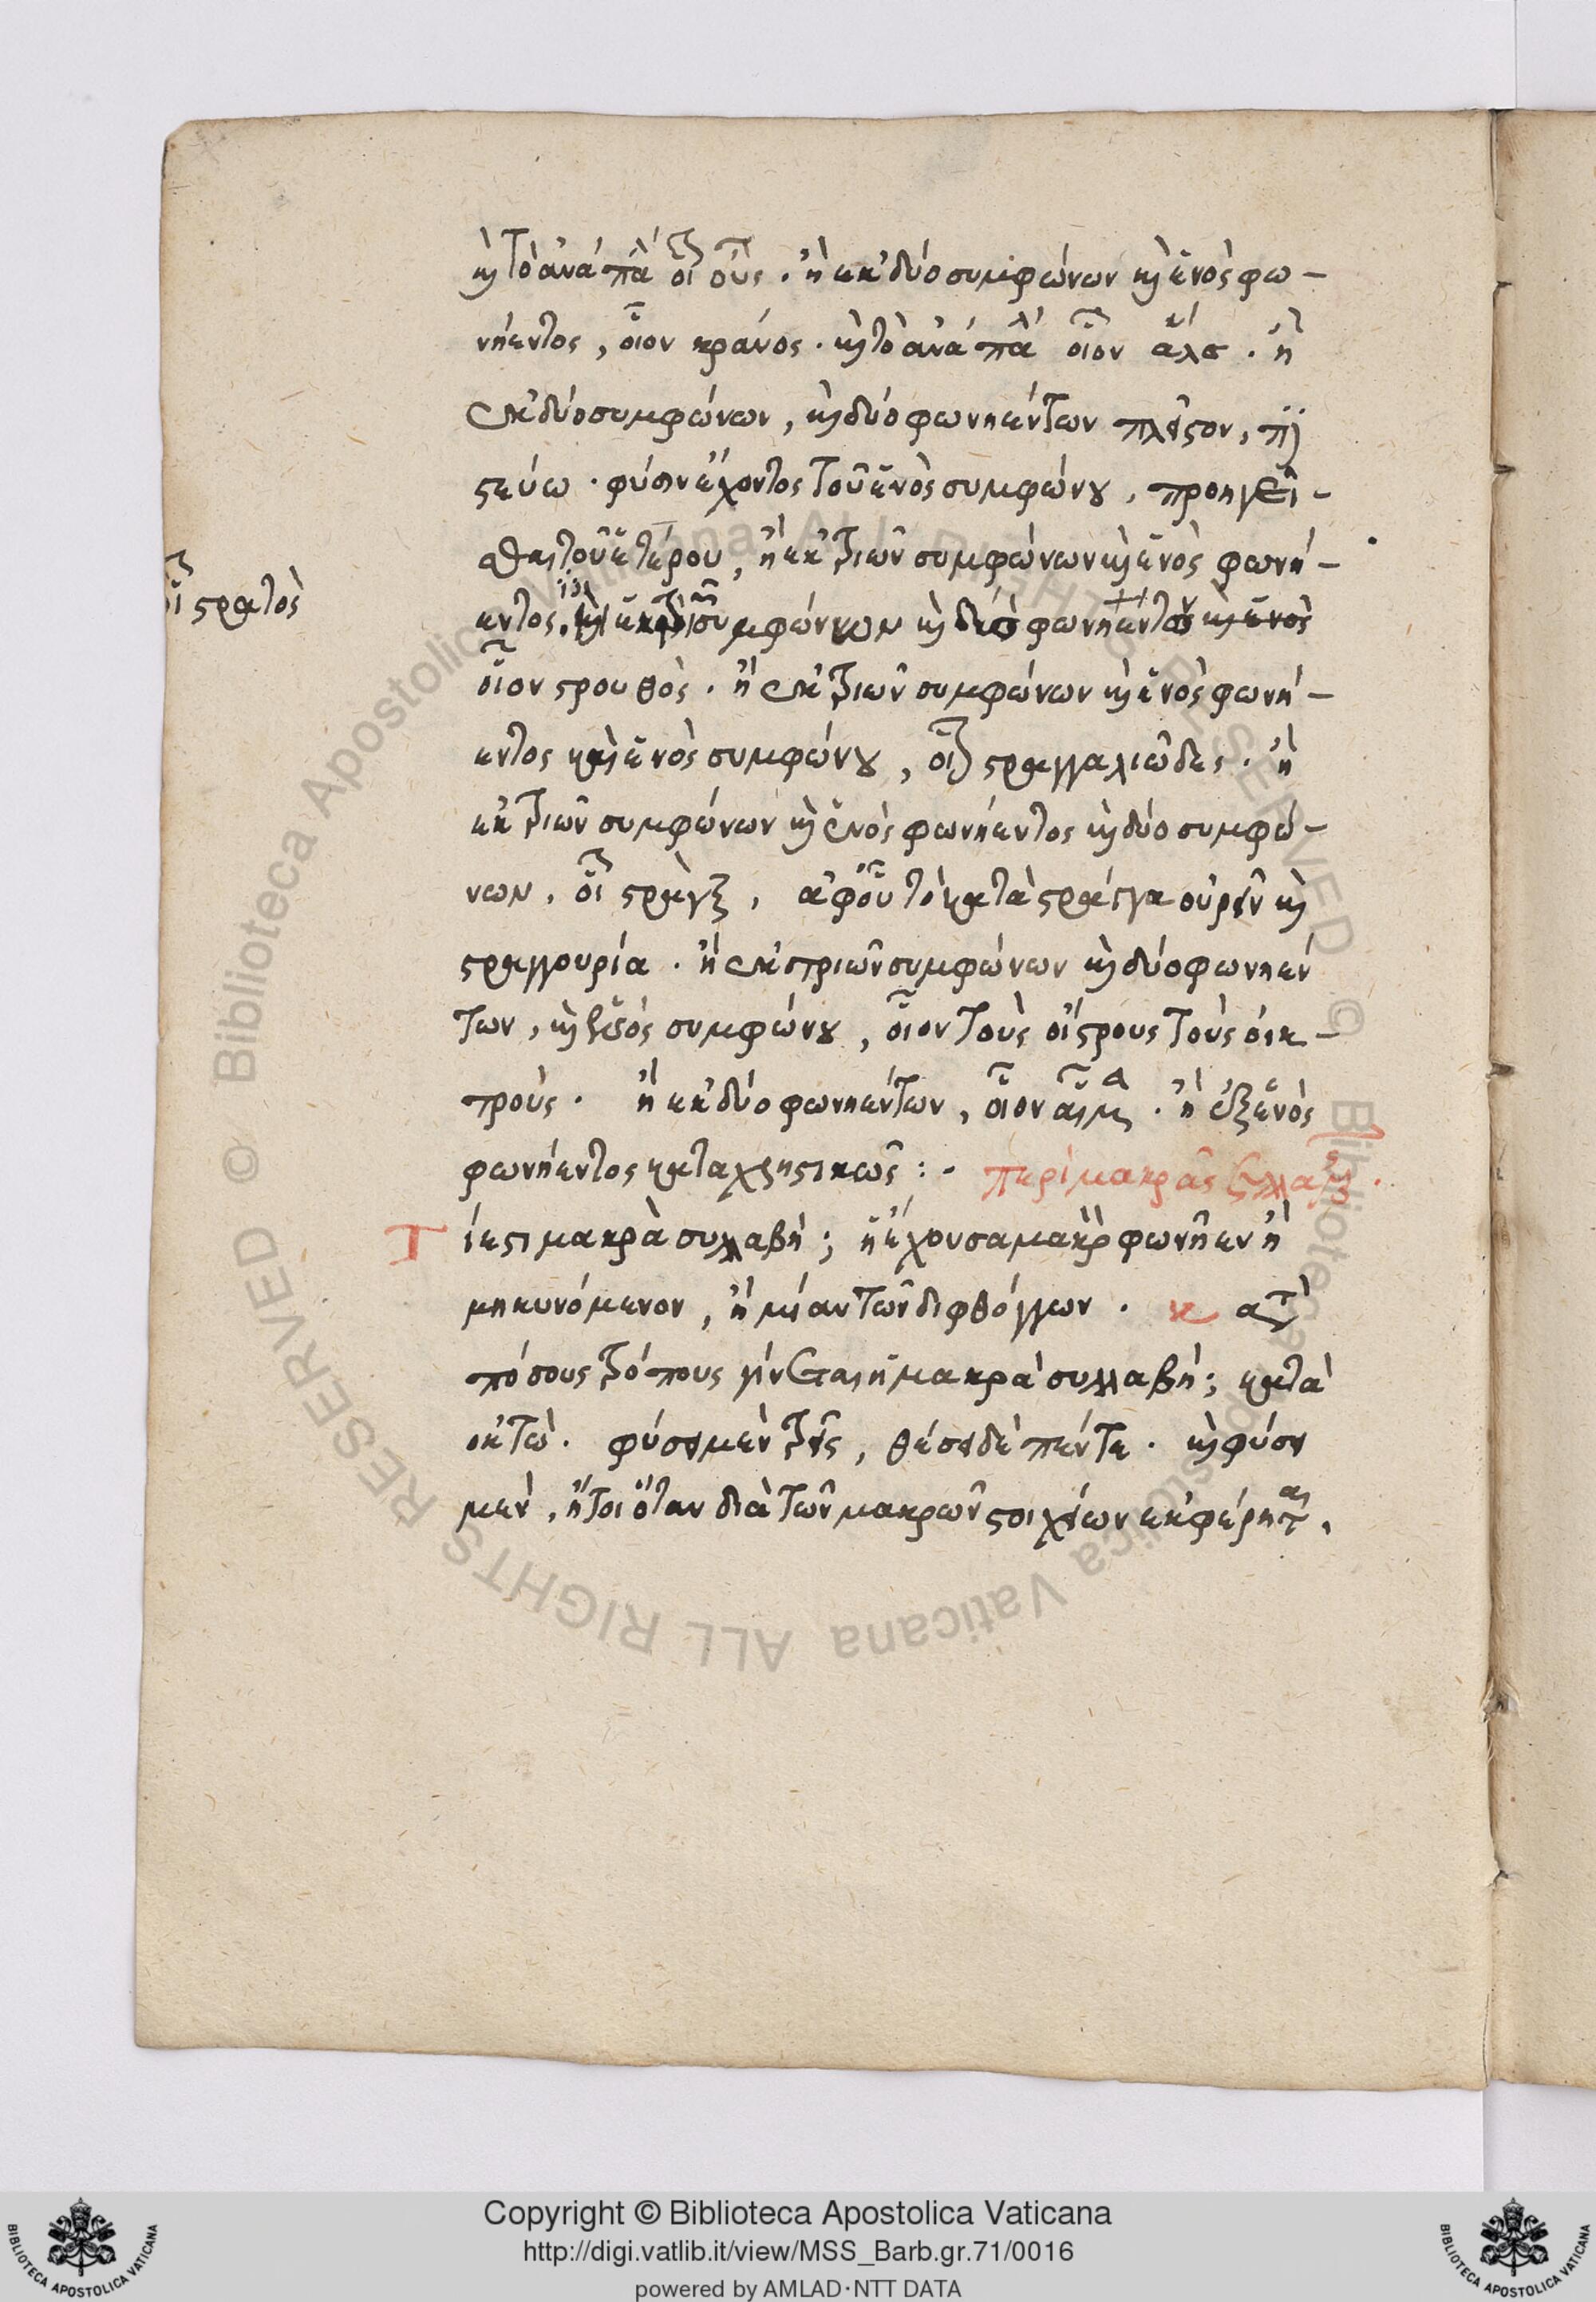 καὶ τὸ ἀνάπαλ οἷον οὖς. ἢ ἐκ δύο συμφώνων καὶ ἑνὸς φω-
νήεντος, οἷον κράνος. καὶ τὸ ἀνάπαλ οἷον ἅλς. ἢ
ἐκ δύο συμφώνων, καὶ δύο φωνηέντων πλεῖστον, πι
στεύω. φύσιν ἔχοντος τοῦ ἑνὸς συμφώνου, προηγεῖ-
σθαι τοῦ ἑτέρου, ἢ ἐκ τριῶν συμφώνων καὶ ἑνὸς φωνή-
οἷ στρατὸς
εντος. συμφώνων καὶ δύο φωνηέντων καὶ ἑνὸς
οἷον στρουθὸς. ἢ ἐκ τριῶν συμφώνων καὶ ἑνὸς φωνή-
εντος καὶ ἑνὸς συμφώνου, οἷον στραγγαλιῶδες. ἢ
ἐκ τριῶν συμφώνων καὶ ἑνὸς φωνήεντος καὶ δύο συμφώ-
νων, οἷ στρὰγξ, ἀφ' οὗ τὸ κατὰ στράγγα οὐρεῖν καὶ
στραγγουρία. ἢ ἐκ τριῶν συμφώνων καὶ δύο φωνηέν
των, καὶ ἑνός συμφώνου, οἷον τοὺς οἴστρους τοὺς οἰκ-
τρούς. ἢ ἐκ δύο φωνηέντων, οἷον αἷμα. ἢ ἐξ ἑνὸς
φωνήεντος καταχρηστικῶς :. περὶ μακρᾶς συλλαβῆς.
Τί ἐστι μακρὰ συλλαβή; ἡ ἔχουσα μακρὸν φωνῆεν ἢ
μηκυνόμενον, ἢ μίαν τῶν διφθόγγων. κατὰ
πόσους τρόπους γίνεται ἡ μακρὰ συλλαβή; κατὰ
ὀκτώ. φύσει μὲν τρεῖς, θέσει δὲ πέντε. καὶ φύσει
μὲν, ἤτοι ὅταν διὰ τῶν μακρῶν στοιχείων ἐκφέρηται,
Copyright © Biblioteca Apostolica Vaticana
http://digi.vatlib.it/view/MSS_Barb.gr.71/0016
powered by AMLAD·NTT DATA